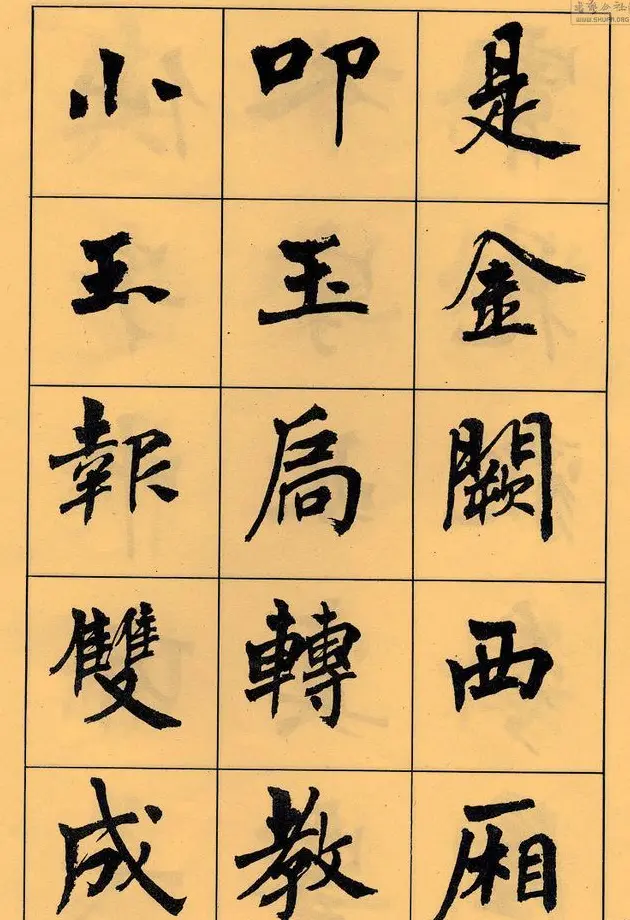 是金闕西廂
叩玉扃轉教
小玉報雙成
WWW.SHUFA.ORG